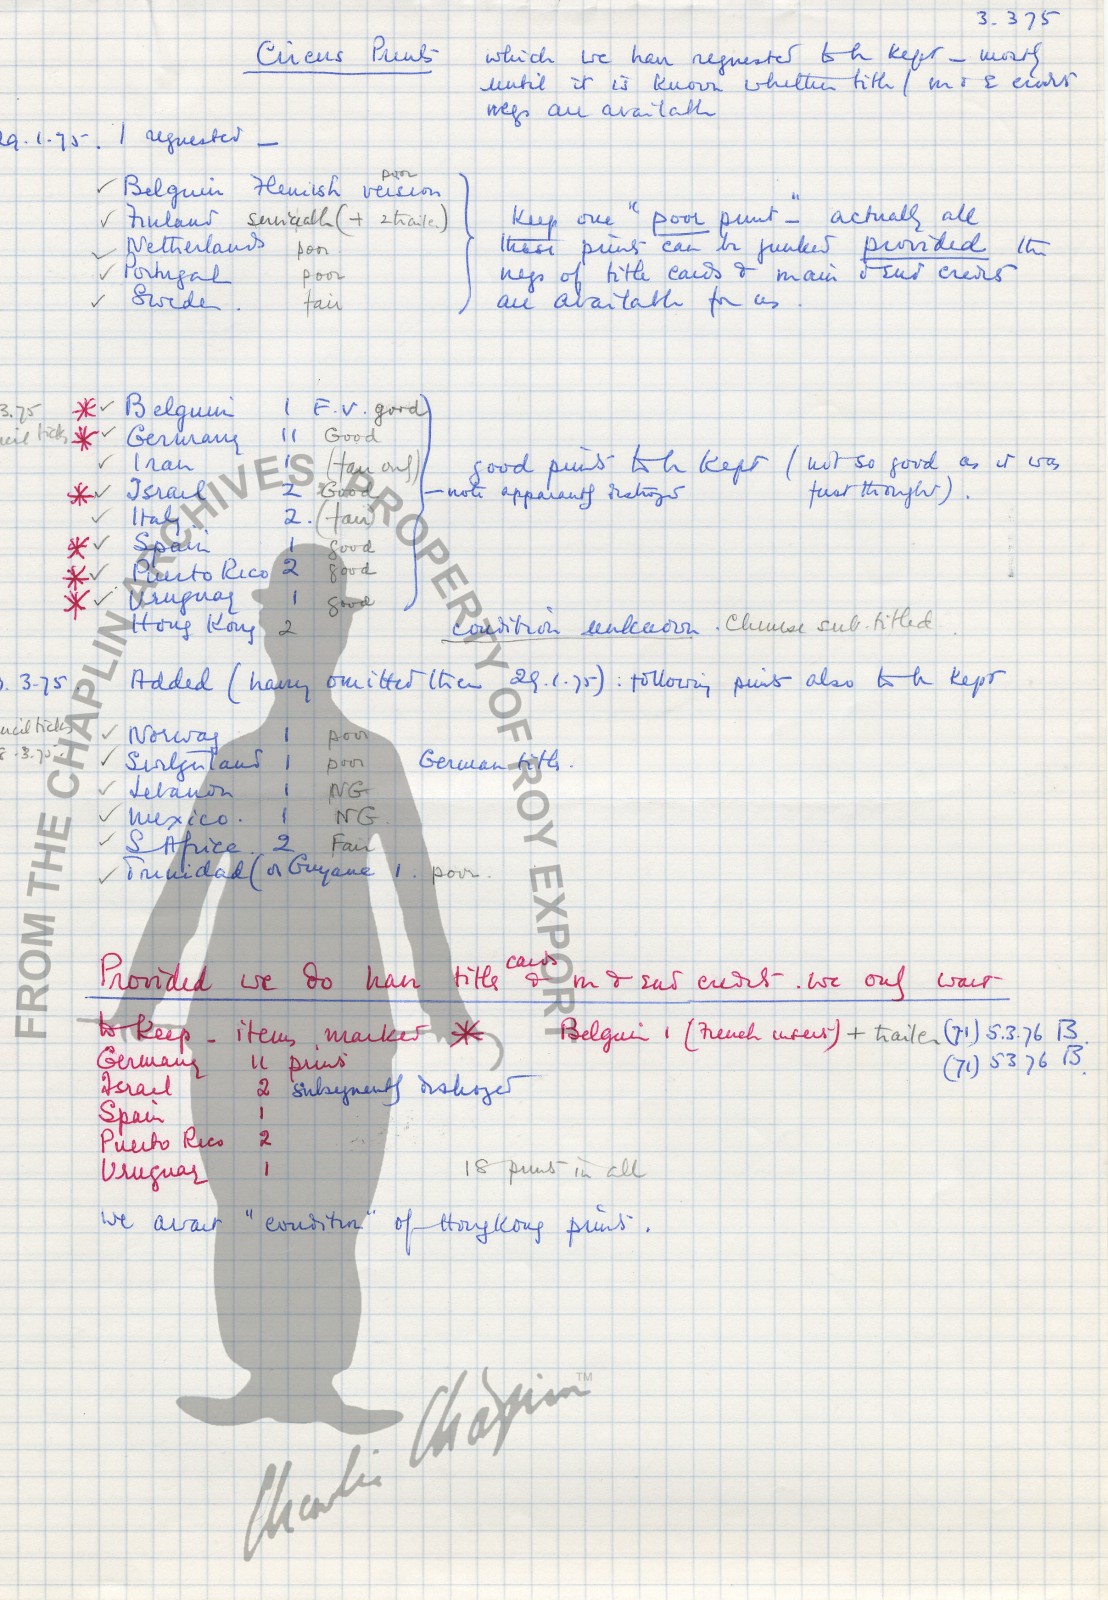 3.375
Circus Prints which we have requested to be kept – mostly
until it is known whether title / m & E credit
negs are available
29.1.75. I requested –
✓ Belguim Flemish version poor
✓ Finland serviceable (+ 2 trailer)
✓ Netherlands poor
✓ Portugal poor
✓ Sweden. fair
Keep one "poor print–" actually all
these prints can be junked provided the
negs of title cards & main & End credit
are available for us.
3.75
pencil ticks
* ✓ Belguim 1 F.V. good
* ✓ Germany 11 Good
✓ Iran 1 (fair only)
* ✓ Israel 2 Good
✓ Italy 2. (fair)
* ✓ Spain 1 good
* ✓ Puerto Rico 2 good
* ✓ Uruguay 1 good
good prints to be kept (not so good as it was
first thought).
– note apparently destroyed
Hong Kong 2 condition unknown. Chinese sub.titled.
3.75. Added (having omitted them 29.1.75): following prints also to be kept
pencil ticks
8.3.75.
✓ Norway 1 poor
✓ Switzerland 1 poor German titles.
✓ Lebanon 1 NG
✓ Mexico. 1 NG.
✓ S Africa. 2 Fair
✓ Trinidad (or Guyane 1. poor.
Provided we do have title cards & m & End credit. we only want
to keep – items marked * Belguim 1 (French insert) + trailer (71) 5.3.76 B.
Germany 11 prints (71) 5 3 76 B.
Israel 2 subsequently destroyed
Spain 1
Puerto Rico 2
Uruguay 1 18 prints in all
We await "condition" of HongKong prints.
FROM THE CHAPLIN ARCHIVES, PROPERTY OF ROY EXPORT
Charlie Chaplin™